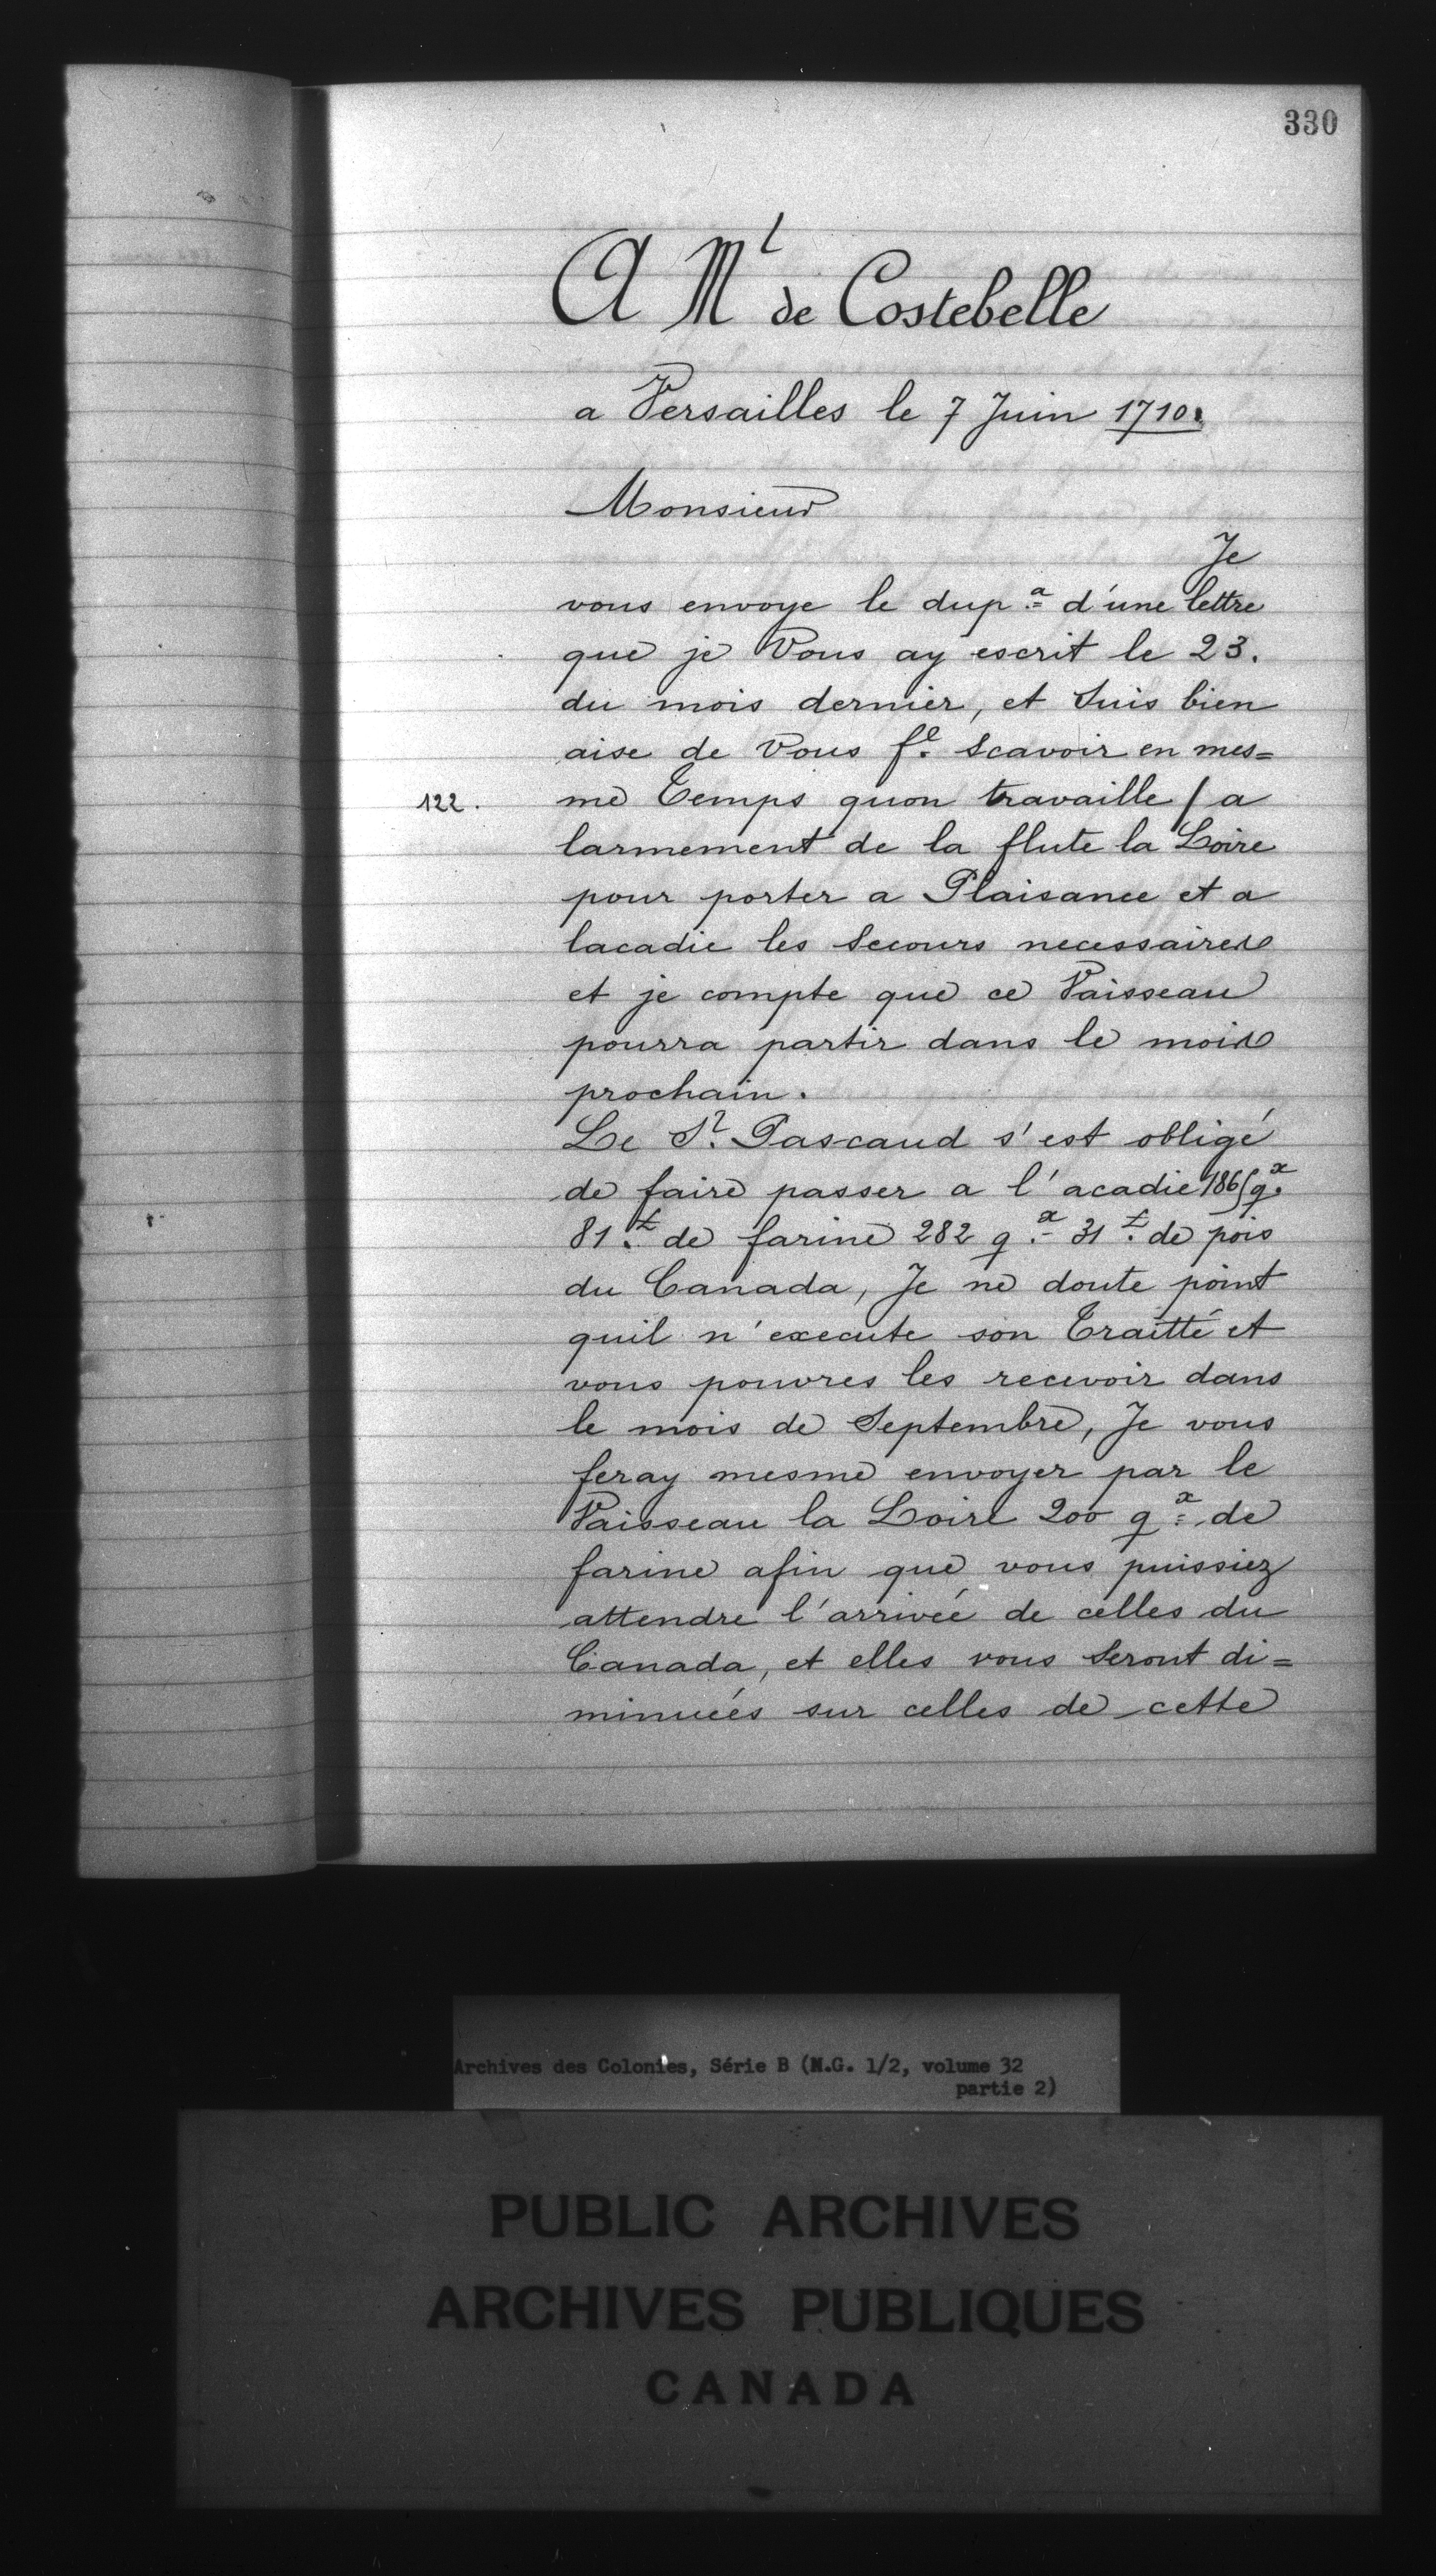 330
A Mr de Costebelle
a Versailles le 7 Juin 1710.
Monsieur
Je
vous envoye le dup.a d'une lettre
que je Vous ay escrit le 23.
du mois dernier, et Suis bien
aise de Vous f.e Scavoir en mes=
122. me Temps quon travaille / a
larmement de la flute la Loire
pour porter a Plaisance et a
lacadie les Secours necessaires
et je compte que ce Vaisseau
pourra partir dans le mois
prochain.
Le Sr. Pascaud s'est obligé
de faire passer a l'acadie q.x
81.t de farine 282 q.x 31t. de pois
du Canada, Je ne doute point
quil n'execute son Traitté et
vous pouvres les recevoir dans
le mois de Septembre, Je vous
feray mesme envoyer par le
Vaisseau la Loire 200 q.x de
farine afin que vous puissiez
attendre l'arriveé de celles du
Canada, et elles vous Seront di=
minueés sur celles de cette
Archives des Colonies, Série B (M.G. 1/2, volume 32
partie 2)
PUBLIC ARCHIVES
ARCHIVES PUBLIQUES
CANADA